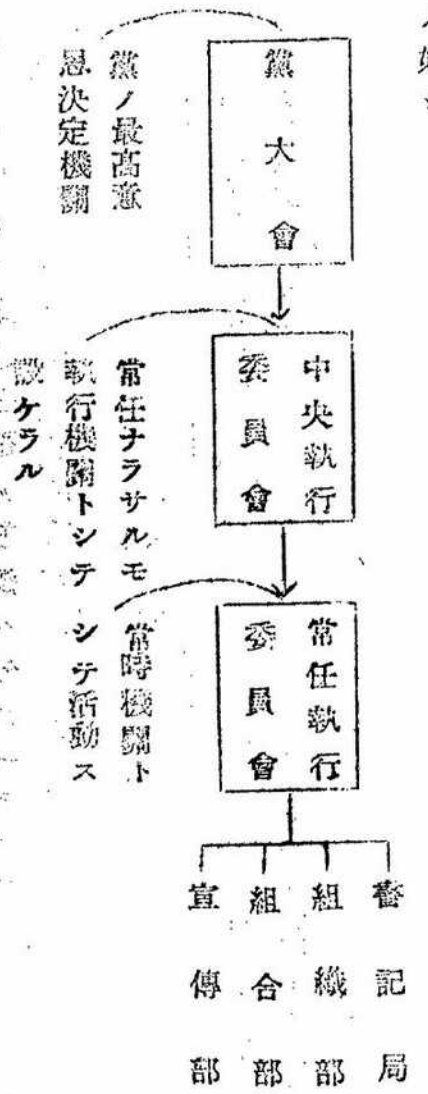 黨大會
黨ノ最高意
思決定機關
中央執行
委員會
常任ナラサルモ
執行機關トシテ
設ケラル
常任執行
委員會
常時機關ト
シテ活動ス
書記局
組織部
組合部
宣傳部